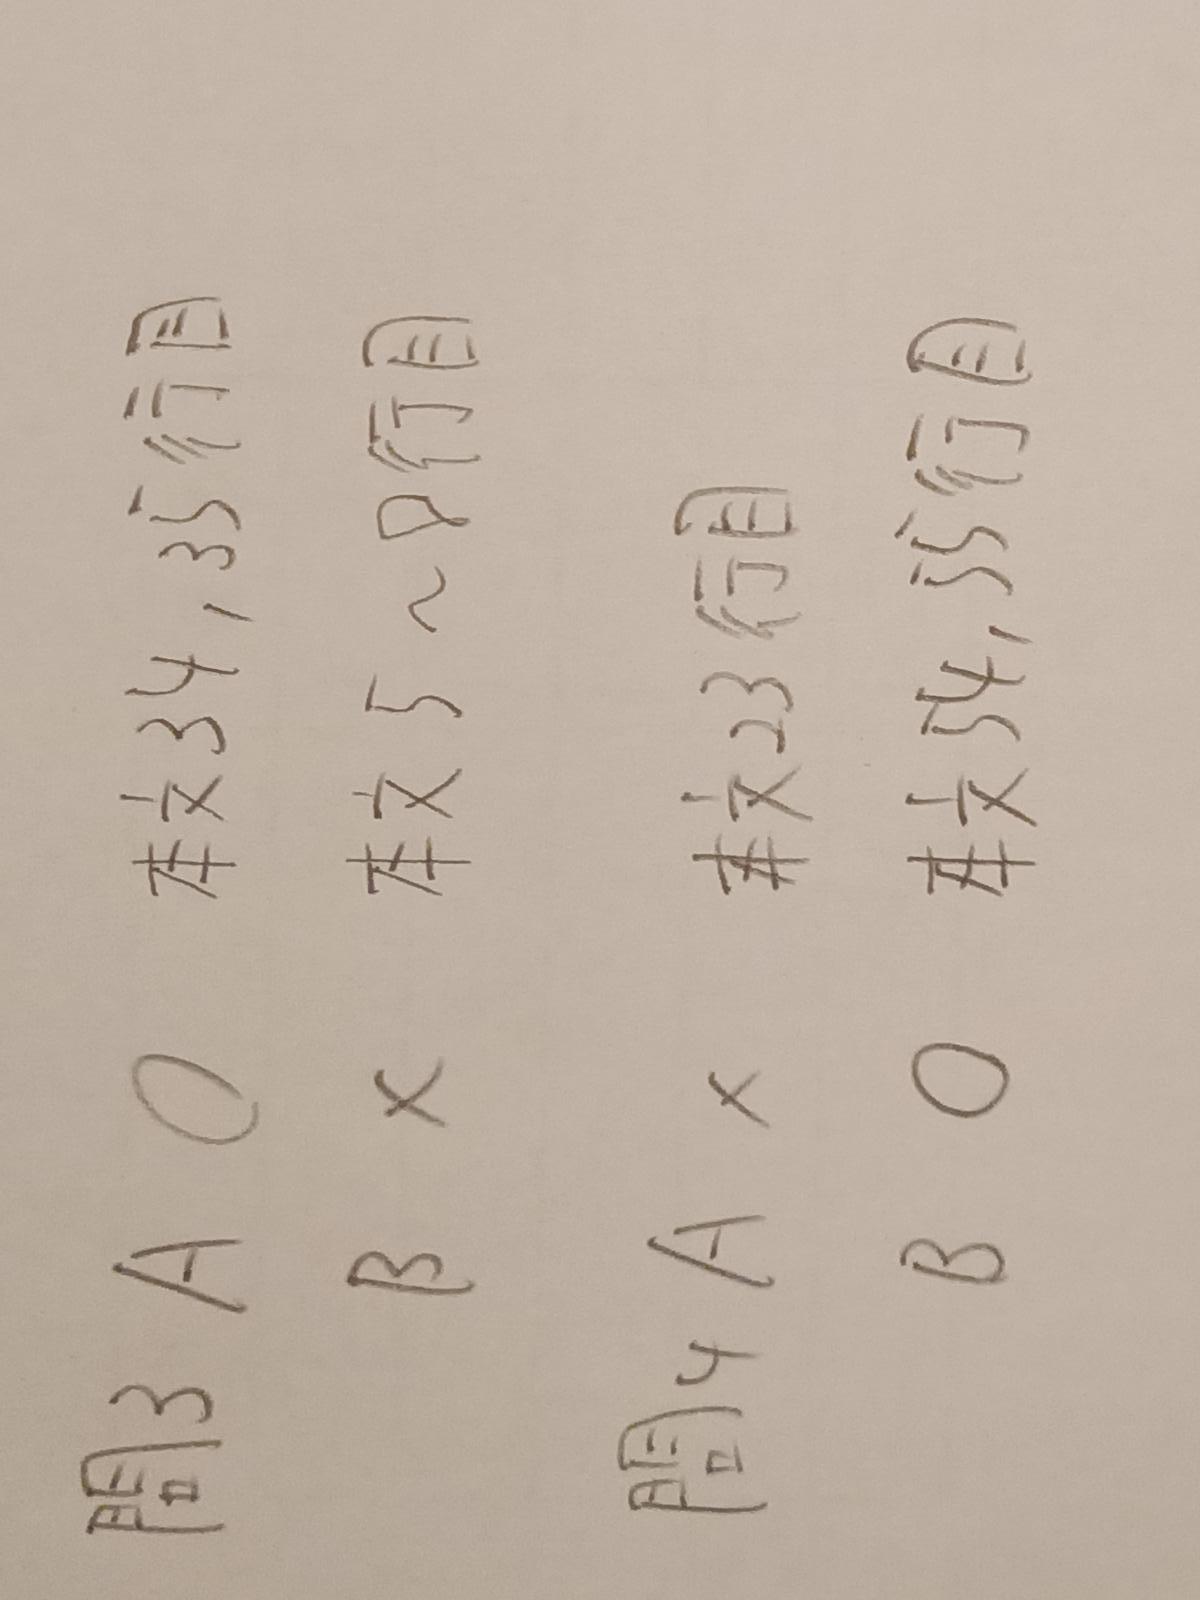 問3 A ○ 本文34,35行目
B × 本文5~8行目
問4 A × 本文23行目
B ○ 本文54,55行目